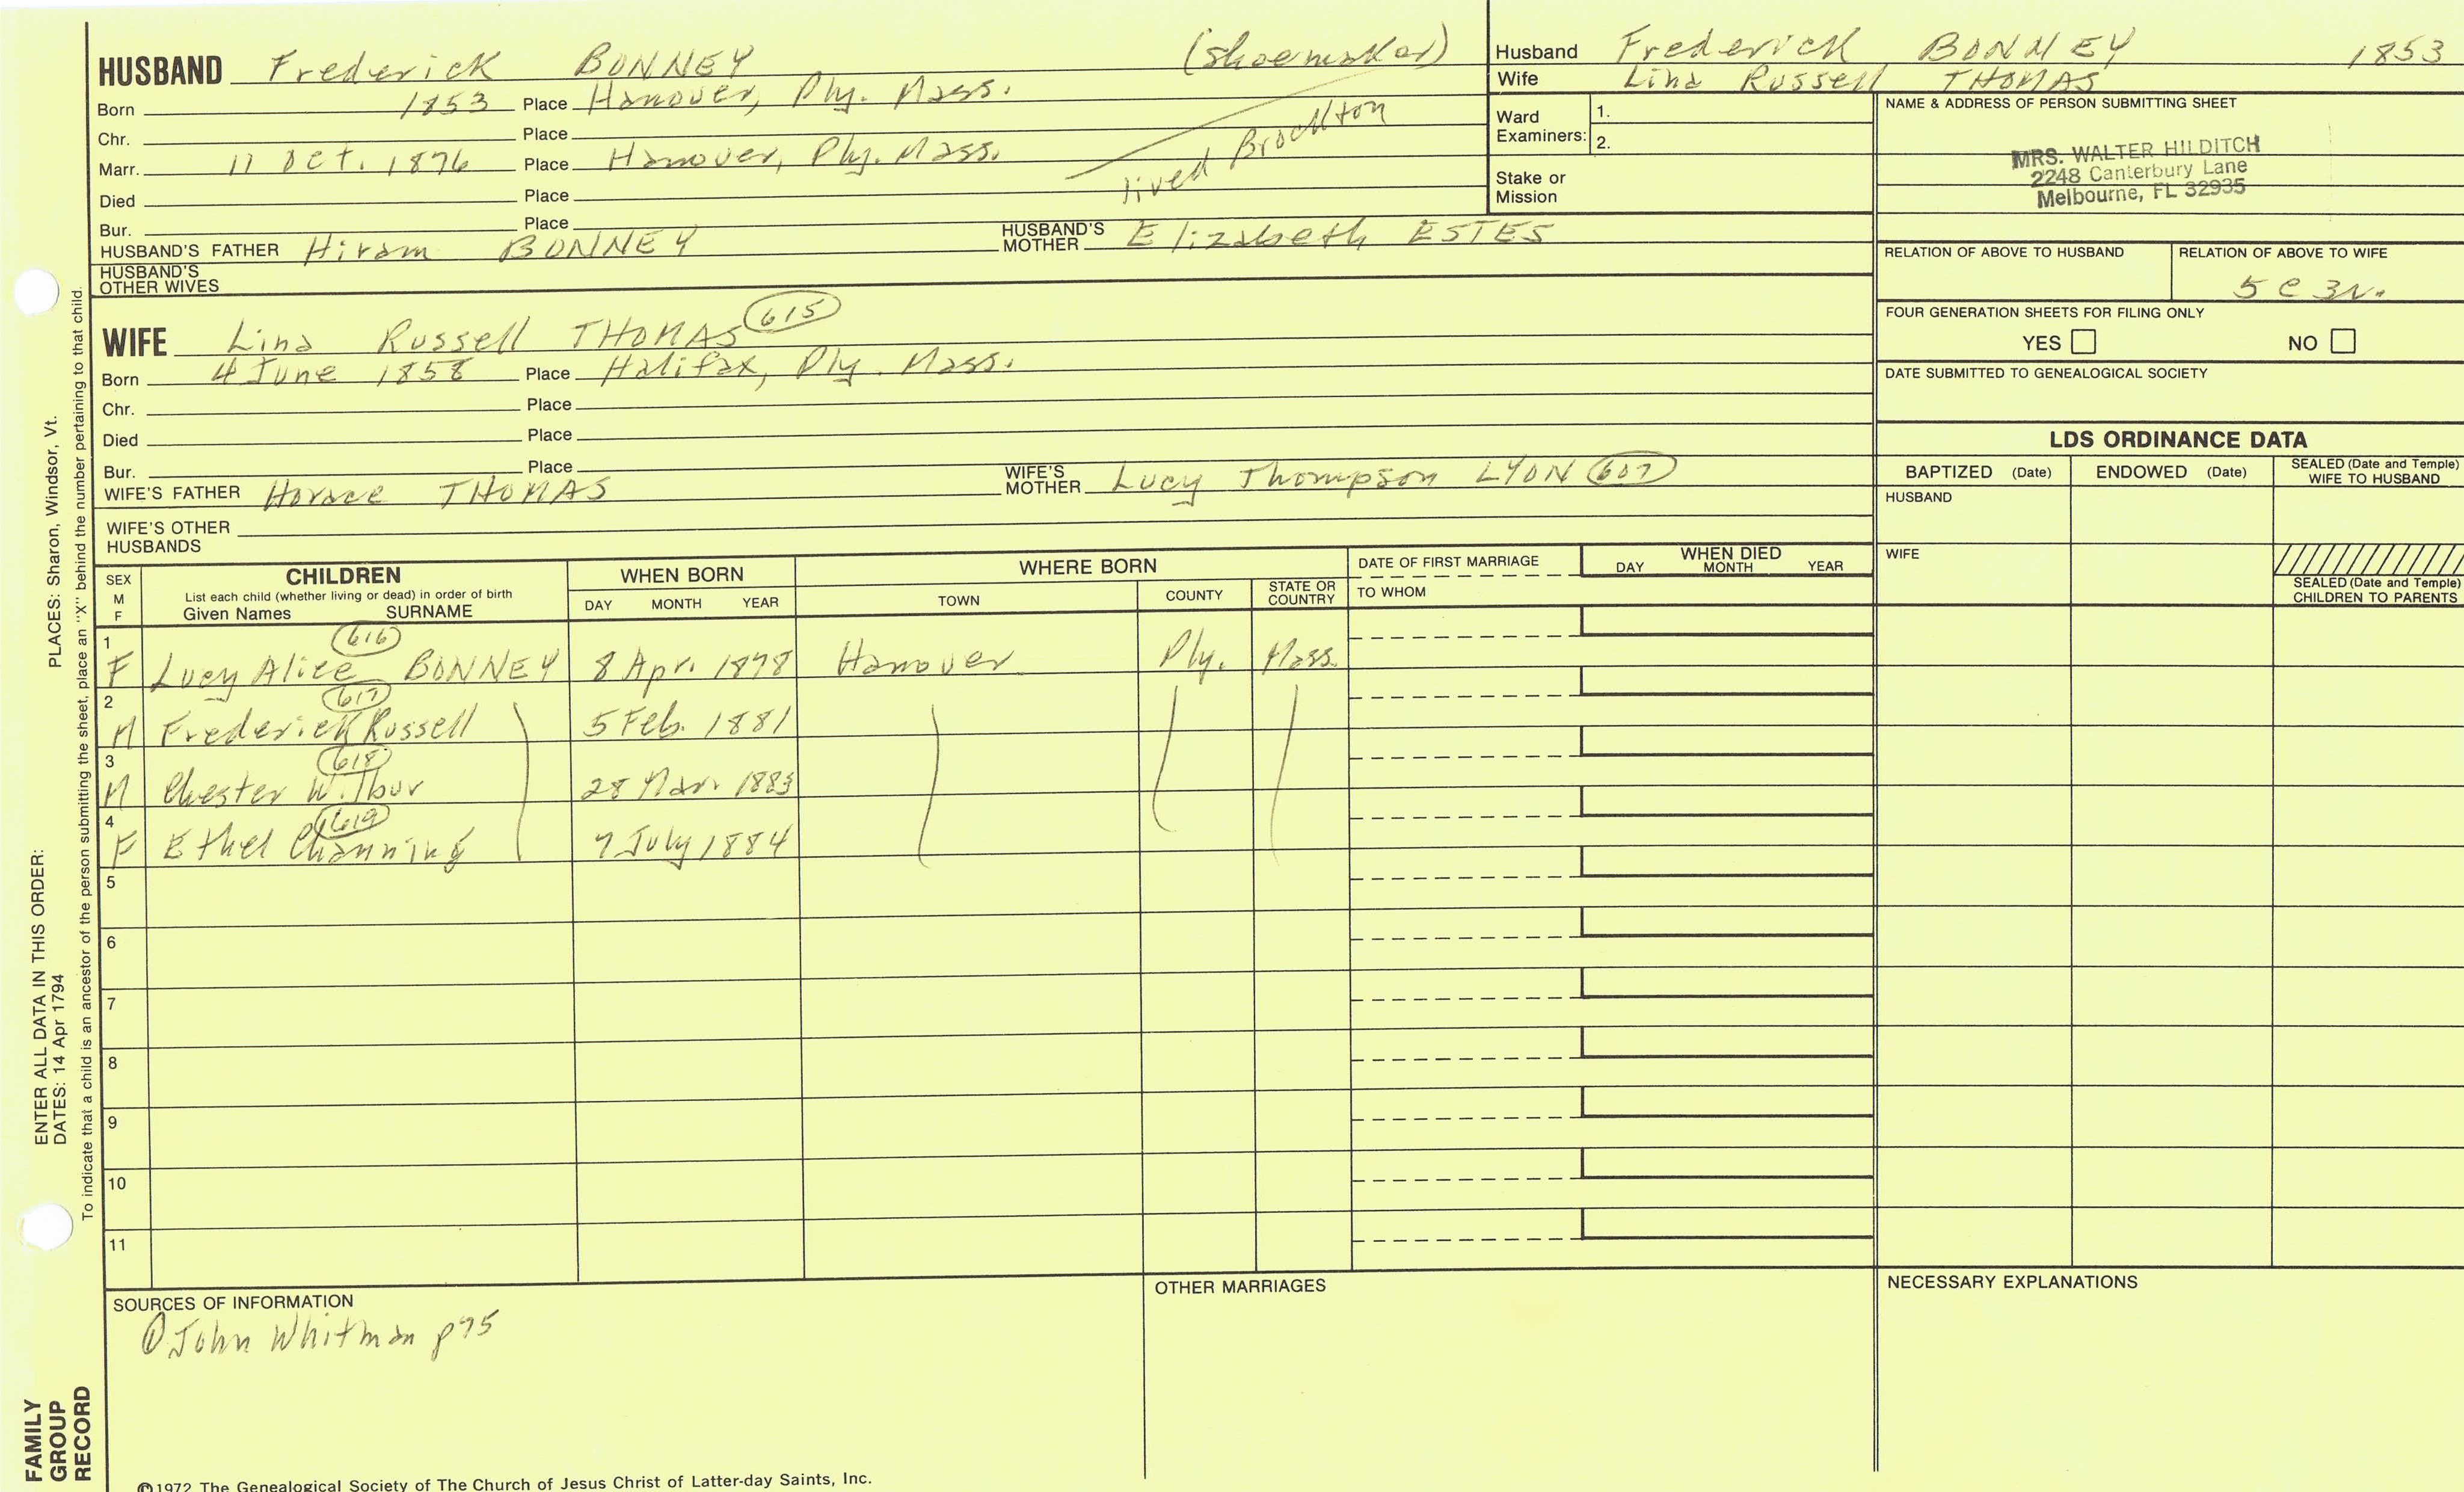 HUSBAND Frederick BONNEY (Shoemaker)
Born 1853 Place Hanover, Ply. Mass.
Chr. Place
Marr. 11 Oct. 1876 Place Hanover, Ply. Mass. lived Brockton
Died Place
Bur. Place
HUSBAND'S FATHER Hiram BONNEY HUSBAND'S MOTHER Elizabeth ESTES
HUSBAND'S OTHER WIVES
WIFE Lina Russell THOMAS 615
Born 4 June 1858 Place Halifax, Ply. Mass.
Chr. Place
Died Place
Bur. Place
WIFE'S FATHER Horace THOMAS WIFE'S MOTHER Lucy Thompson LYON 607
WIFE'S OTHER HUSBANDS
Husband Frederick BONNEY 1853
Wife Lina Russell THOMAS
Ward Examiners: 1.
2.
Stake or Mission
NAME & ADDRESS OF PERSON SUBMITTING SHEET
MRS. WALTER HILDITCH
2248 Canterbury Lane
Melbourne, FL 32935
RELATION OF ABOVE TO HUSBAND RELATION OF ABOVE TO WIFE
5 C 3 N.
FOUR GENERATION SHEETS FOR FILING ONLY
YES NO
DATE SUBMITTED TO GENEALOGICAL SOCIETY
LDS ORDINANCE DATA
BAPTIZED (Date) ENDOWED (Date) SEALED (Date and Temple) WIFE TO HUSBAND
HUSBAND
WIFE
SEALED (Date and Temple) CHILDREN TO PARENTS
SEX M F CHILDREN WHEN BORN WHERE BORN DATE OF FIRST MARRIAGE WHEN DIED
List each child (whether living or dead) in order of birth
Given Names SURNAME DAY MONTH YEAR TOWN COUNTY STATE OR COUNTRY TO WHOM DAY MONTH YEAR
616
1 F Lucy Alice BONNEY 8 Apr. 1878 Hanover Ply. Mass.
617
2 M Frederick Russell 5 Feb. 1881
618
3 M Chester Wilbur 28 Mar. 1883
619
4 F Ethel Channing 7 July 1884
5
6
7
8
9
10
11
SOURCES OF INFORMATION
① John Whitman p75
OTHER MARRIAGES
NECESSARY EXPLANATIONS
©1972 The Genealogical Society of The Church of Jesus Christ of Latter-day Saints, Inc.
FAMILY
GROUP
RECORD
ENTER ALL DATA IN THIS ORDER:
DATES: 14 Apr 1794
PLACES: Sharon, Windsor, Vt.
To indicate that a child is an ancestor of the person submitting the sheet, place an "X" behind the number pertaining to that child.